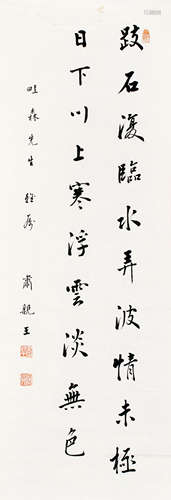 跂石復臨水弄波情未極
日下川上寒浮雲淡無色
旺森先生雅屬
肅親王